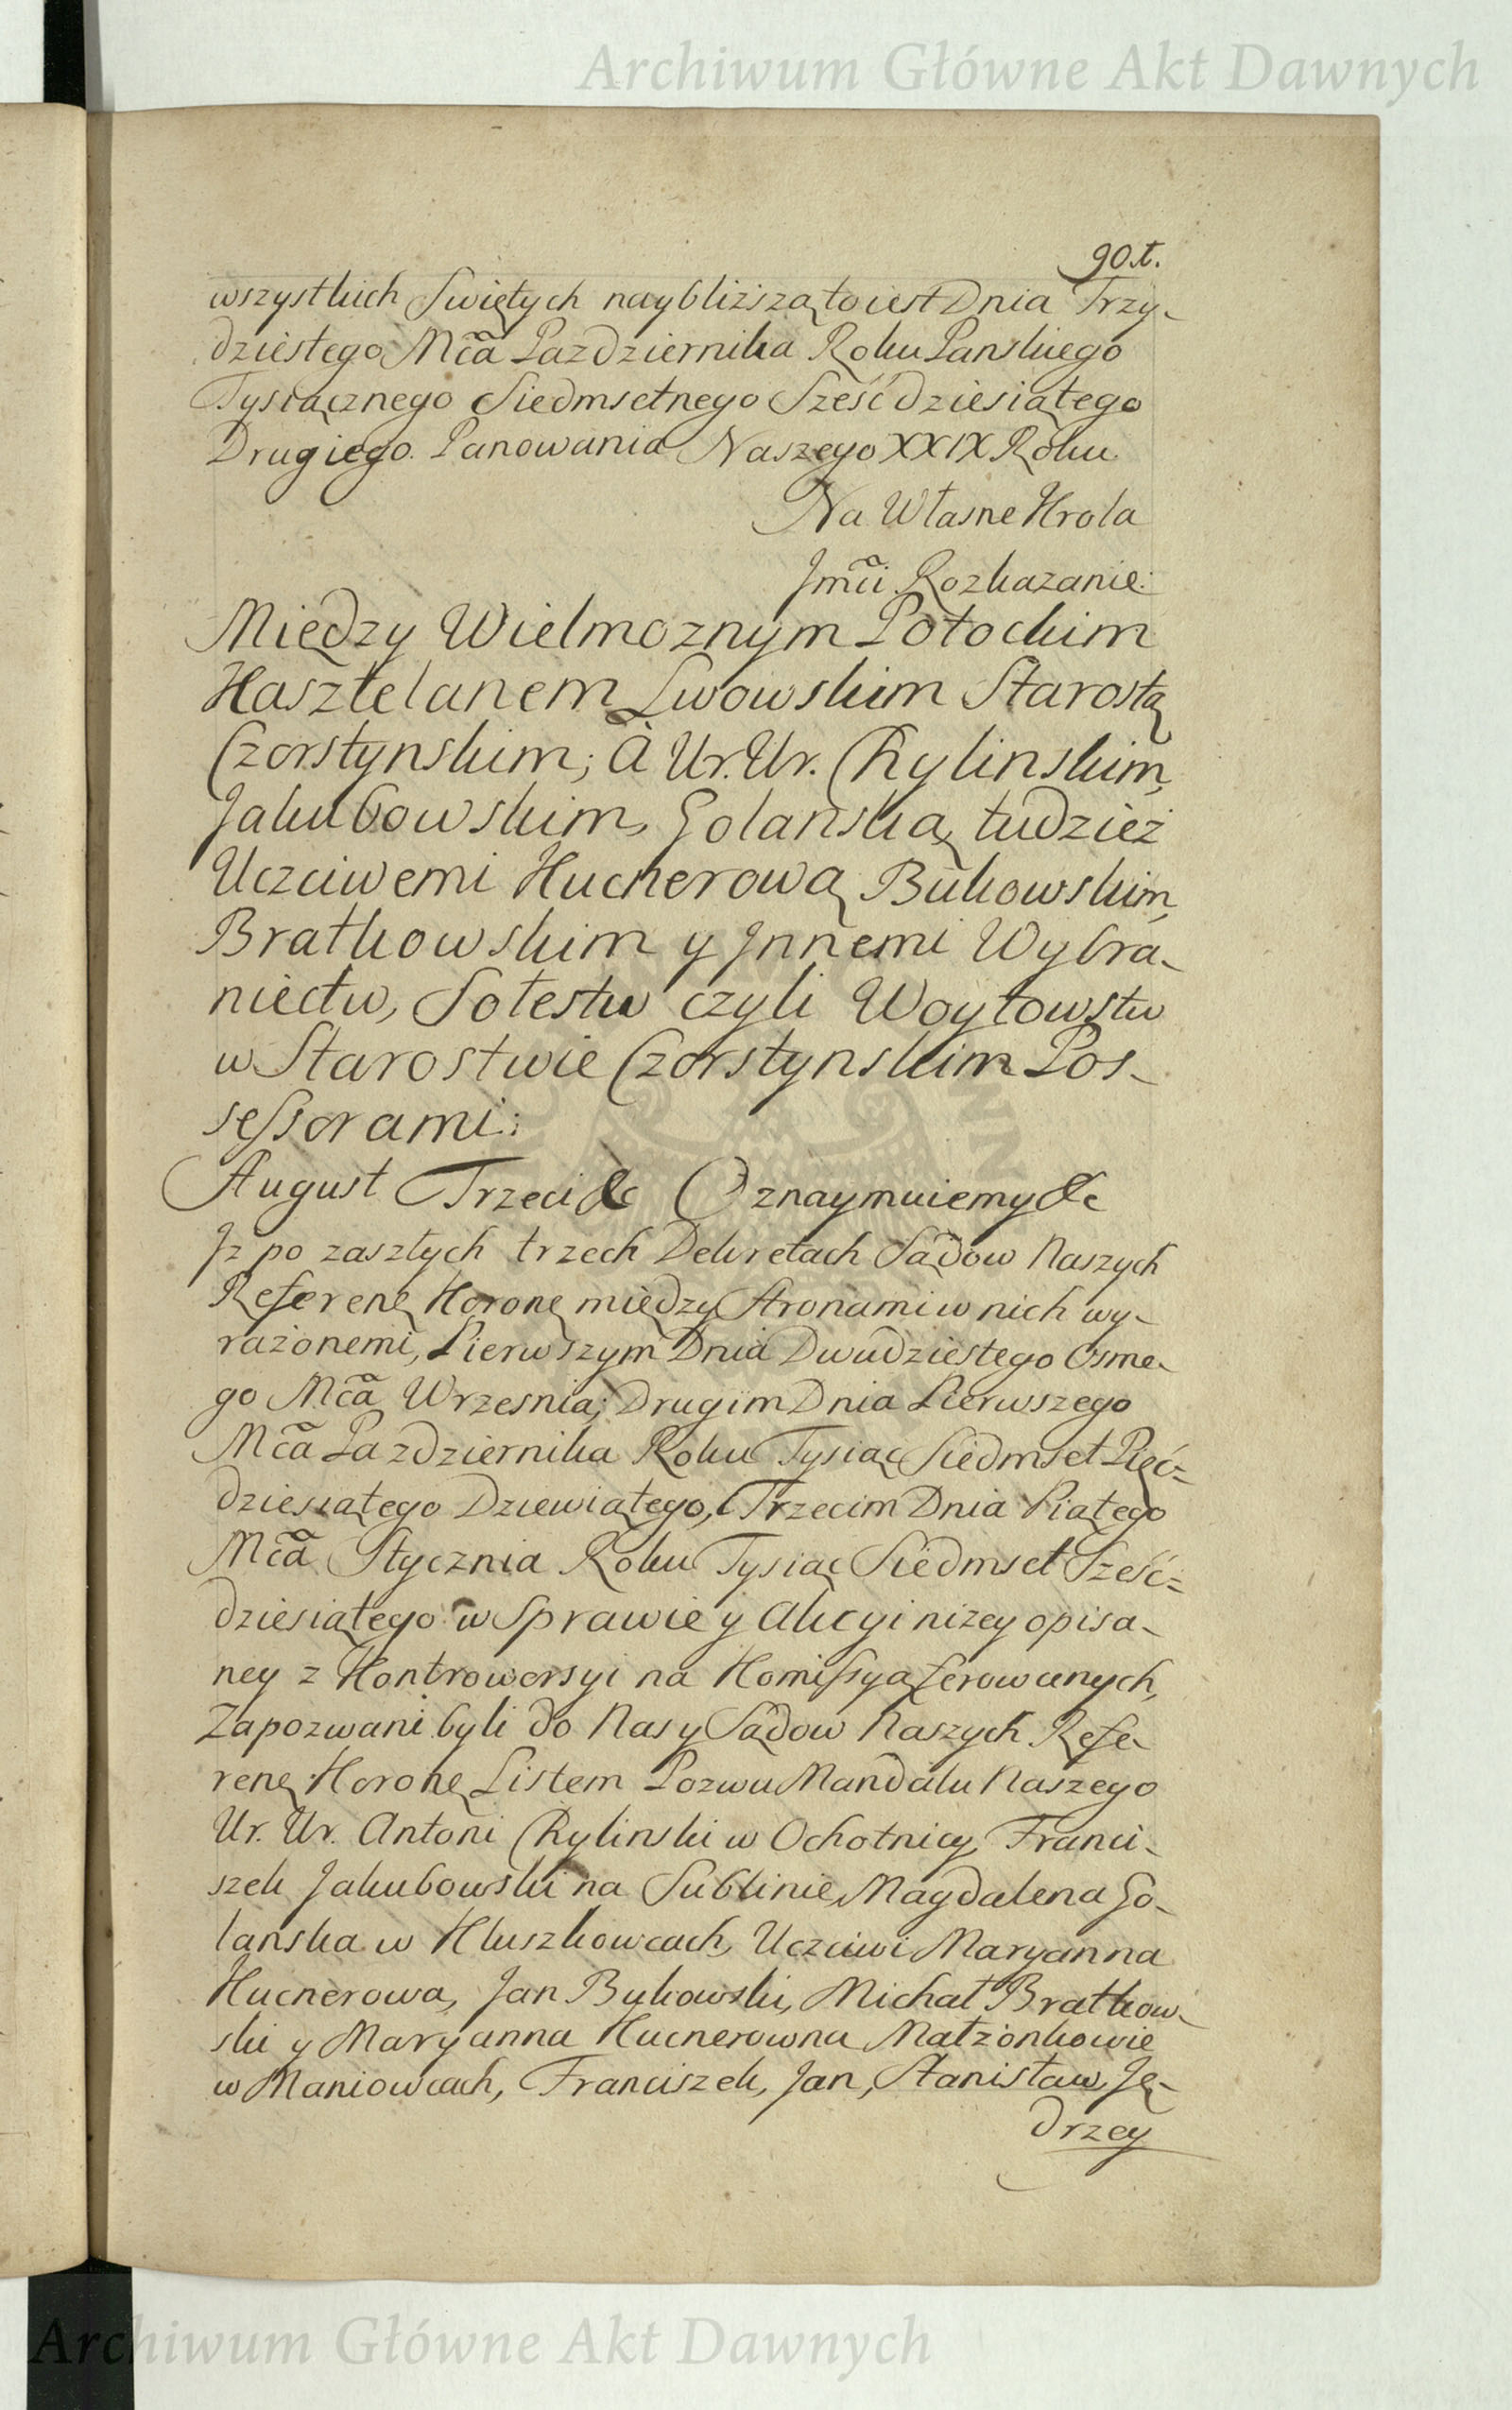 Archiwum Główne Akt Dawnych
90.t.
wszystkich Swiętych naybliższą to iest Dnia Trzy-
dziestego Mca Pazdziernika Roku Panskiego
Tysiącznego Siedmsetnego Sześćdziesiątego
Drugiego. Panowania Naszego XXIX Roku
Na Własne Krola
Jmci Rozkazanie:
Między Wielmoznym Potockim
Kasztelanem Lwowskim Starostą
Czorstynskim; à Ur. Ur. Chylinskim,
Jakubowskim, Golanską, tudzież
Uczciwemi Hucnerową Bukowskim,
Bratkowskim y Jnnemi Wybra-
niectw, Sołestw czyli Woytowstw
w Starostwie Czorstynskim Pos-
sessorami:
August Trzeci &c Oznaymuiemy &c
Jz po zaszłych trzech Dekretach Sądow Naszych
Referenę Koronę między Stronami w nich wy-
rażonemi, Pierwszym Dnia Dwudziestego Osme-
go Mca Wrzesnia; Drugim Dnia Pierwszego
Mca Pazdziernika Roku Tysiąc Siedmset Pięć=
dziesiątego Dziewiątego, Trzecim Dnia Piątego
Mca Stycznia Roku Tysiąc Siedmset Sześć=
dziesiątego w Sprawie y Akcyi nizey opisa-
ney z Kontrowersyi na Komissyą ferowanych,
Zapozwani byli do Nas y Sądow Naszych Refe-
renę Koronę Listem Pozwu Mandatu Naszego
Ur. Ur. Antoni Chylinski w Ochotnicy, Franci-
szek Jakubowski na Sublinie, Magdalena Go-
lanska w Kluszkowcach, Uczciwi Maryanna
Hucnerowa, Jan Bukowski, Michał Bratkow-
ski y Maryanna Hucnerowna Małżonkowie
w Maniowcach, Franciszek, Jan, Stanisław, Ję-
drzey
Archiwum Główne Akt Dawnych